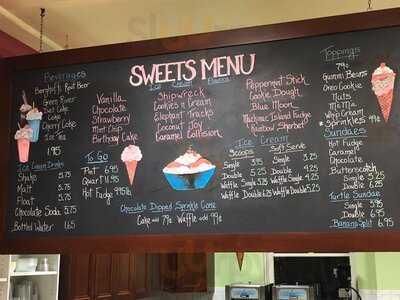 SWEETS MENU
Beverages
Berghoff Root Beer
Green River
Diet Coke
Coke
Cherry Coke
Ice Tea
1.95
Ice Cream Drinks
Shake 5.75
Malt 5.75
Float 5.75
Chocolate Soda 5.75
Bottled Water
Ice Cream Flavors
Vanilla
Chocolate
Strawberry
Mint Chip
Birthday Cake
Shipwreck
Cookies n Cream
Elephant Tracks
Coconut Joy
Caramel Collision
Peppermint Stick
Cookie Dough
Blue Moon
Mackinac Island Fudge
Rainbow Sherbet
To Go
Pint 6.95
Quart 11.95
Hot Fudge
Chocolate Dipped Sprinkle Cone
Cake add 79¢ Waffle add 99¢
Ice Cream
Single 3.95
Double 5.25
Waffle Single 5.25
Waffle Double
Soft Serve
Single 3.25
Double 4.25
Waffle Single 4.25
Waffle Double 5.25
Toppings
79¢
Gummi Bears
Oreo Cookie
Nuts
M&M's
Whip Cream
Sprinkles 99¢
Sundaes
Hot Fudge
Caramel
Chocolate
Butterscotch
Single 5.25
Double 6.25
Turtle Sundae
Single 5.95
Double 6.95
Banana Split 6.95